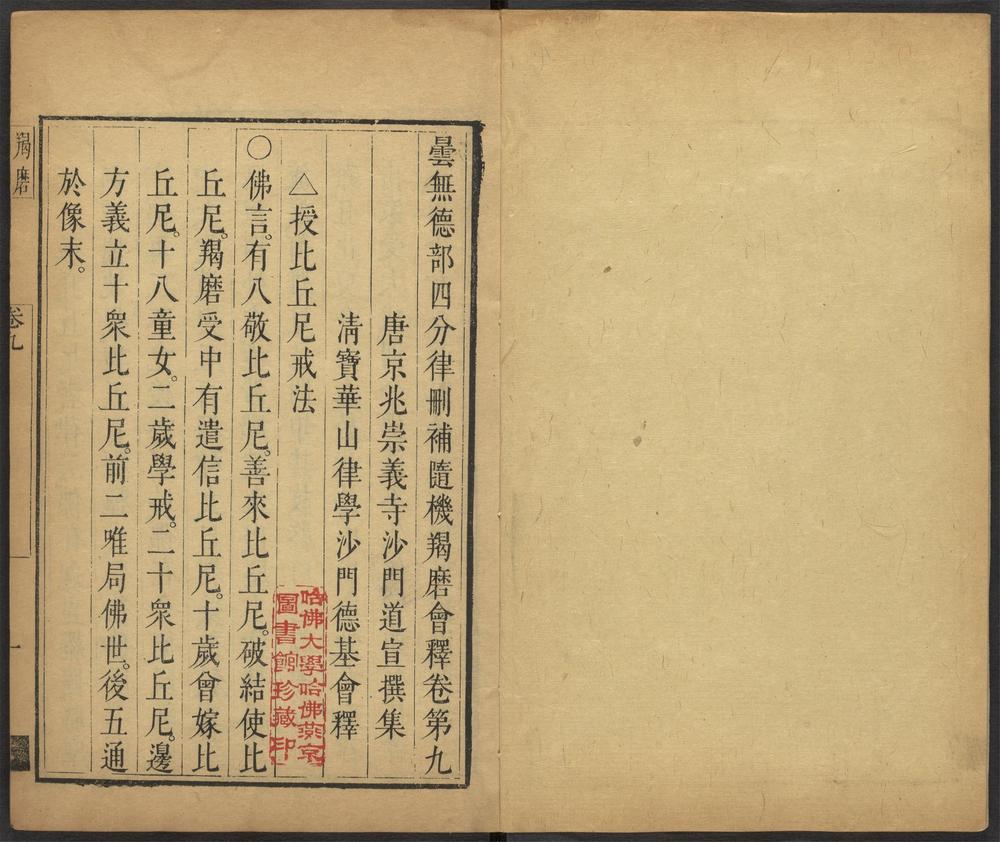 曇無德部四分律刪補隨機羯磨會釋卷第九
唐京兆崇義寺沙門道宣撰集
清寶華山律學沙門德基會釋
△授比丘尼戒法
○佛言。有八敬比丘尼。善來比丘尼。破結使比
丘尼。羯磨受中有遣信比丘尼。十歲曾嫁比
丘尼。十八童女。二歲學戒。二十衆比丘尼。邊
方義立十衆比丘尼。前二唯局佛世。後五通
於像末。
羯磨
卷九
一
哈佛大學哈佛燕京
圖書館珍藏印